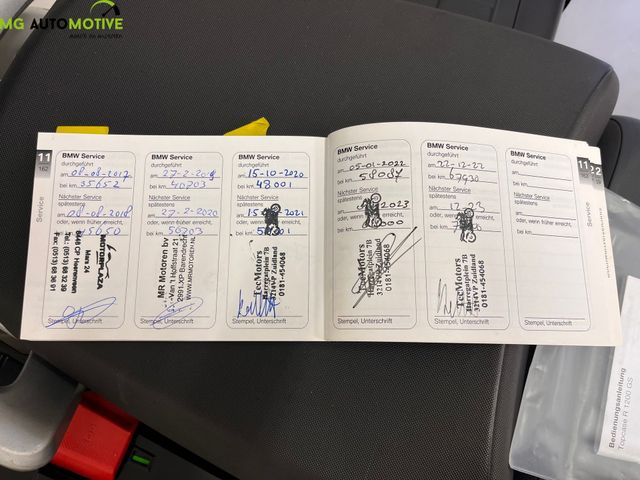 MG AUTOMOTIVE
11
162
Service
BMW Service
durchgeführt
am 08-08-2017
bei km 35652
Nächster Service
spätestens
am 08-08-2018
oder, wenn früher erreicht,
bei km
MOTORPLAZA
Mars 24
8448 CP Heerenveen
Tel.: (0513) 68 32 30
Fax: (0513) 68 36 91
Stempel, Unterschrift
BMW Service
durchgeführt
am 27-2-2019
bei km 40703
Nächster Service
spätestens
am 27-2-2020
oder, wenn früher erreicht,
bei km 50703
MR Motoren bv
Van 't Hoffstraat 21
2991 XP Barendrecht
Stempel, Unterschrift
BMW Service
durchgeführt
am 15-10-2020
bei km 48001
Nächster Service
spätestens
am 15 2021
oder, wenn früher erreicht,
bei km
TecMotors
Harregatplein 7B
3214VP Zuidland
0181-454068
Stempel, Unterschrift
BMW Service
durchgeführt
am 05-01-2022
bei km 58087
Nächster Service
spätestens
am 2023
oder, wenn früher erreicht,
bei km
TecMotors
Harregatplein 7B
3214VP Zuidland
0181-454068
Stempel, Unterschrift
BMW Service
durchgeführt
am 22-12-22
bei km
Nächster Service
spätestens
am 12-23
oder, wenn früher erreicht,
bei km
TecMotors
Harregatplein 7B
3214VP Zuidland
0181-454068
Stempel, Unterschrift
BMW Service
durchgeführt
am
bei km
Nächster Service
spätestens
am
oder, wenn früher erreicht,
bei km
Stempel, Unterschrift
11
22
Service
Bedienungsanleitung
Topcase R 1200 GS